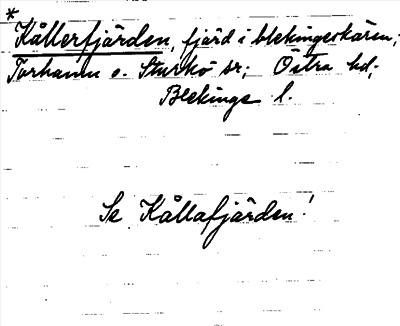 *
Kållerfjärden, fjärd i blekingeskären;
Torhamn o. Sturkö sr; Östra hd;
Blekinge l.
Se Kållafjärden!